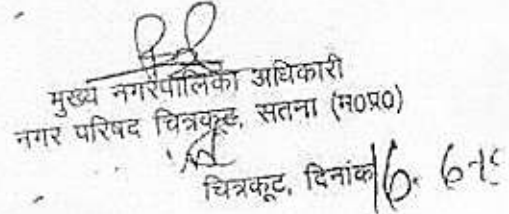 मुख्य नगरपालिका अधिकारी
नगर परिषद चित्रकूट, सतना (म0प्र0)
चित्रकूट, दिनांक 16. 6-